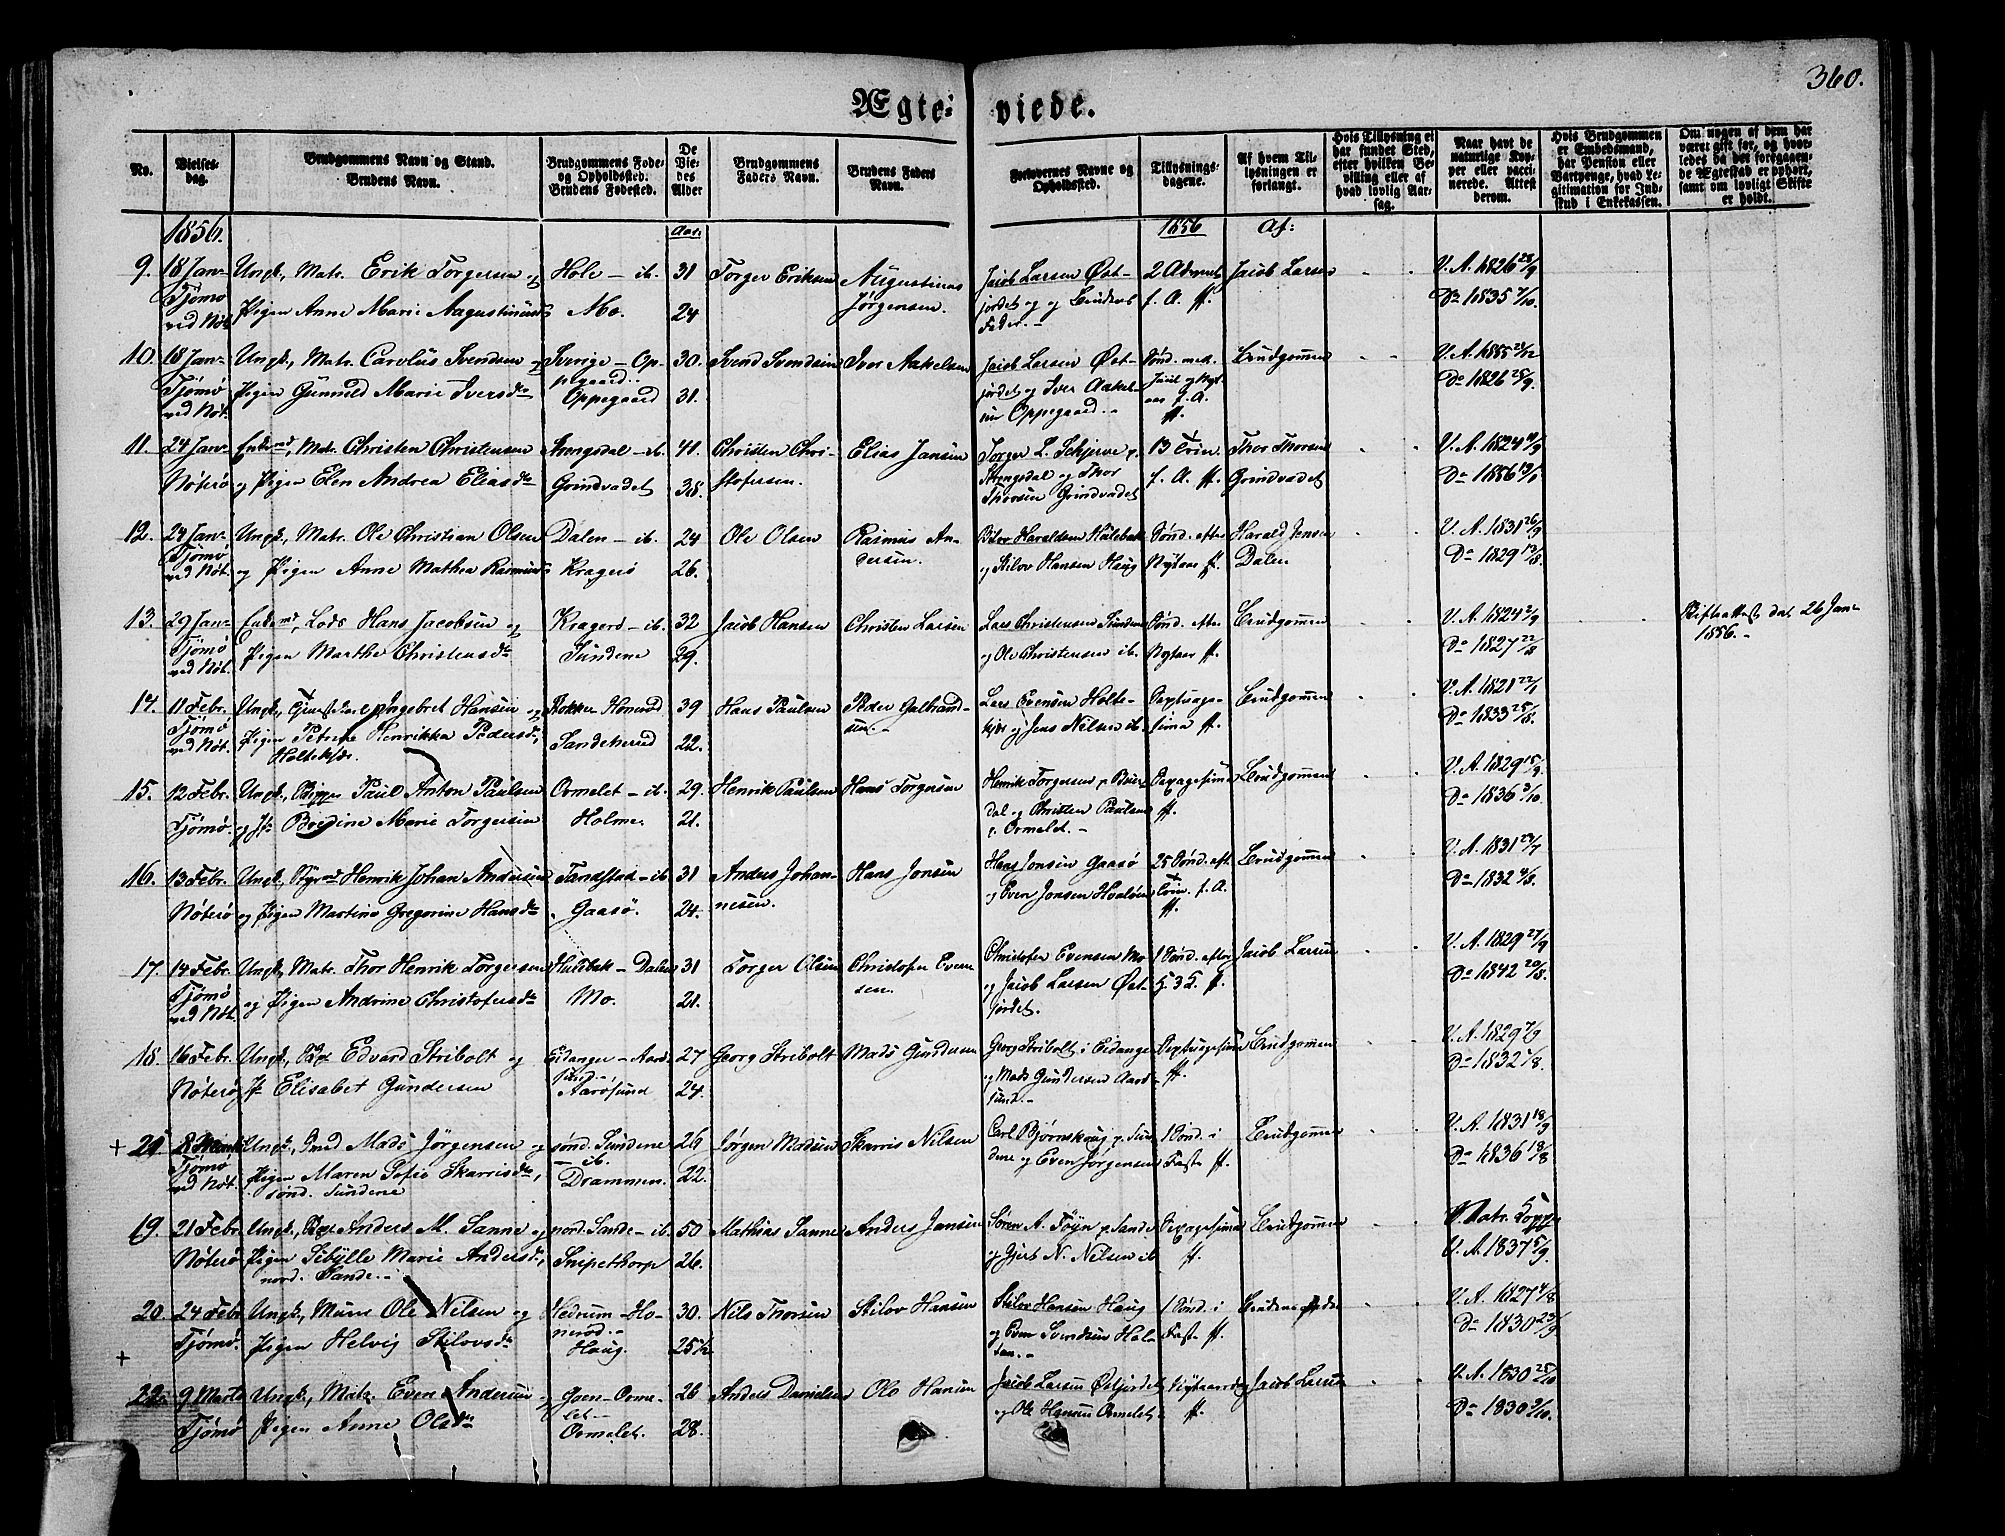 360.
Ægte- viede.
No.
Vielses-dag.
Brudgommens Navn og Stand.
Brudens Navn.
Brudgommens Føde- og Opholdssted.
Brudens Fødested.
De Viedes Alder
Brudgommens Faders Navn.
Brudens Faders Navn.
Forlovernes Navne og Opholdssted.
Tillysningsdagene.
Af hvem Tillysningen er forlangt.
Hvis Tillysning ei har fundet Sted, efter hvilken Bevilling eller af hvad lovlig Aarsag.
Naar havt de naturlige Kopper eller vaccinerede. Attest derom.
Hvis Brudgommen er Embedsmand, har Pension eller Vartpenge, hvad Legitimation for Indskud i Enkekassen.
Om nogen af dem har været gift før, og hvorledes da det foregaaende Ægteskab er ophørt, samt om lovligt Skifte er holdt.
1856. Aar: 1856 Af:
9. 18 Jan- Ungk., Matr. Erik Torgersen og Hole - ib. 31 Torger Eriksen Augustinus Jacob Larsen Øst- 2 Advent Jacob Larsen V. A. 1826 28/9
Tjømø Pigen Anne Marie Augustinusd Mo. 24 Jørgensen jordet og Brudens f. A. ff. Do 1835 7/10
ved Nøt. Fader.-
10. 18 Jan- Ungk., Matr. Carolus Svendsen og Sverige - Op- 30. Svend Svendsen Iver Aakelsen Jacob Larsen Øst- Sønd. mel. Brudgommen
Tjømø Pigen Gunnild Marie Iversdr pegaard.- jordet og Iver Aakel- Juul og Nyt- Do 1826 25/9.
ved Nøt. Oppegaard 31. sen Oppegaard.- aar f. A. ff.
11. 24 Jan- Enkemd, Matr. Christen Christensen Arengsdal - ib. 41. Christen Chri- Elias Jansen Torger L. Schjerve p. 13 Trin. Thor Thorsen V. A. 1824 11/9
Nøterø og Pigen Elen Andrea Eliasdr Grindvadet 38. stofersen. og Thor f. A. ff. Grindvadet Do 1856 19/1
Thorsen Grindvadet
12. 24 Jan- Ungk., Matr. Ole Christian Olsen Dalen - ib. 24 Ole Olsen Rasmus An- Haraldsen Sønd. efter Harald Jensen V. A. 1831 26/9
Tjømø og Pigen Anne Mathea Rasmusd Kragerø 26. dersen. og Stilov Hansen Haug Nytaar ff. Dalen Do 1829 13/8.
ved Nøt.
13. 29 Jan- Enkemd, Lods Hans Jacobsen og Kragerø - ib. 32 Jacob Hansen Christen Larsen Lars Christensen Sundene Sønd. efter Brudgommen V. A. 1824 2/9 Skifteattest dat. 26 Jan-
Tjømø Pigen Marthe Christensdr Sundene 29. og Ole Christensen ib. Nytaar ff. Do 1827 22/8 1856.-
ved Nøt.
14. 11 Febr. Ungk., Ingebret Hansen og 39 Hans Paulsen Peder Gulbrand- Lars Evensen Holte- Septuage- Brudgommen V. A. 1821 22/1
Tjømø Pigen Petrene Henrikka Pedersdr, Sandeherred 22. sen.- kjær og Jens Nilsen ib. sima ff. Do 1833 25/8.
ved Nøt. Holtekjær.
15. 12 Febr. Ungk., Paul Anton Paulsen Ormelet - ib. 29. Henrik Paulsen Hans Torgersen Henrik Torgersen p. Sexagesima Brudgommen V. A. 1829 15/9.
Tjømø. og Jfr Bredine Marie Torgersen Holme. 21. dal og Christen Paulsen ff. Do 1836 3/10.
p. Ormelet.-
16. 13 Febr. Ungk., Styrmd Henrik Johan Andersen Tandstad - ib 31 Anders Johan- Hans Jonsen Hans Jonsen Gaasø 25 Sønd. eft. Brudgommen
Nøterø og Pigen Martine Gregorine Hansdr Gaasø. 24. nesen. og Even Jonsen Trin. f. A. ff. Do 1832 4/8.
17. 14 Febr. Ungk., Matr. Thor Henrik Torgersen Hulebak - Dalen 31 Torger Olsen Christofer Even- Christofer Evensen Mo 1 Sønd. efter Jacob Larsen V. A. 1829 27/9
Tjømø og Pigen Andrine Christofersdr Mo. 21. sen. og Jacob Larsen Øst- H. 3 K. ff. Do 1842 20/8.
ved Nøt. jordet.
18. 16 Febr. Ungk., Edvard Stribolt og Eidanger - Aarø- 27 Georg Stribolt Mads Gundersen Georg Stribolt i Eidanger Septuagesima Brudgommen V. A. 1829 7/9
Nøterø Jfr Elisabet Gundersen sund.- 24. og Mads Gundersen Aarø- ff. Do 1832 5/8.
Aarøsund sund.-
+ 21 Ungk., Mads Jørgensen og sønd. Sundene 26 Jørgen Madsen Skarris Nilsen Carl Bjørnskaug p. Sun- 1 Sønd. i Brudgommen V. A. 1831 18/9
Tjømø Pigen Maren Sofie Skarrisdr, - ib. 22. dene og Even Jørgensen Faste ff. Do 1836 18/8
ved Nøt. sønd. Sundene Drammen.
19. 21 Febr. Ungk., Anders M. Sanne og nord. Sande - ib. 50. Mathias Sanne Anders Jansen Søren A. Føyn p. Sande Sexagesima Brudgommen Natr. Kopper
Nøterø Pigen Sibylle Marie Andersdr, Snipethorp 26. og Gjert N. Nilsen ib ff. V. A. 1837 5/9.
nord. Sande.-
20. 24 Febr. Ungk., Ole Nilsen og Hedrum - Ho- 30. Nils Thorsen Stilov Hansen Stilov Hansen Haug 1 Sønd. i Brudens V. A. 1827 4/8
Tjømø. Pigen Helvig Stilovsdr nerød.- 25½ og Even Svendsen Hol- Faste ff. Do 1830 23/9.
+ Haug. ten.-
22. 9 Marts Ungk., Matr. Even Andersen og Orme- 26 Anders Danielsen Ole Hansen Jacob Larsen Østjordet Nytaarsdag Jacob Larsen V. A. 1830 25/10
Tjømø Pigen Anne Olsdr let.- 28. og Ole Hansen Ormelet. ff. Do 1830 9/10.
Ormelet.